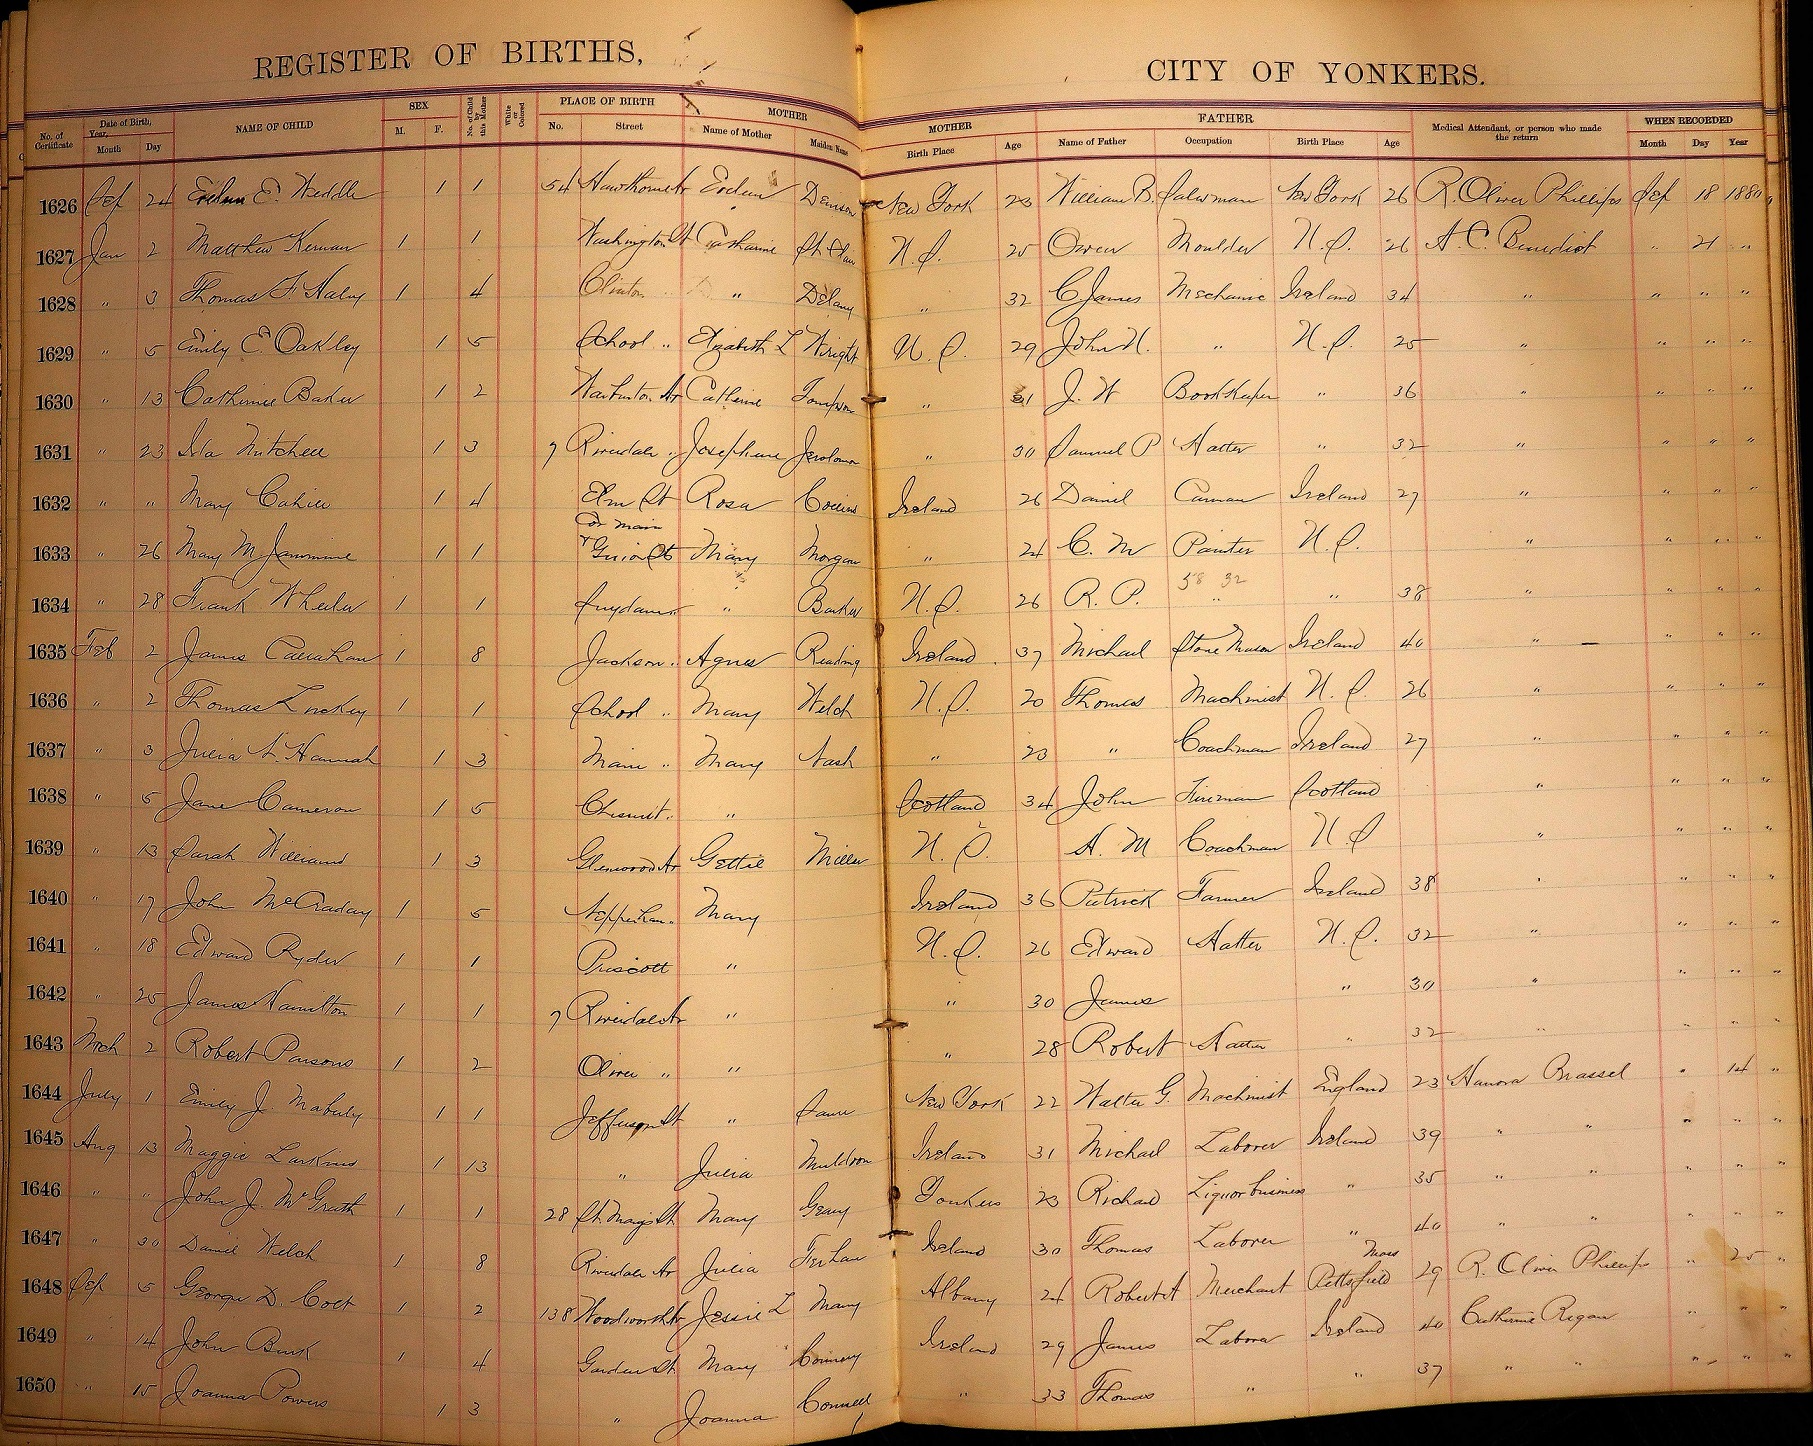 REGISTER OF BIRTHS,
CITY OF YONKERS.
No. of Certificate Date of Birth, Year, Month Day NAME OF CHILD SEX M. F. No. of Child by this Mother White or Colored PLACE OF BIRTH No. Street MOTHER Name of Mother Maiden Name MOTHER Birth Place Age FATHER Name of Father Occupation Birth Place Age Medical Attendant, or person who made the return WHEN RECORDED Month Day Year
1626 Sep 24 E. Weddle 1 1 54 Hawthorne Av Evelin Denison New York 23 William B. Salesman New York 26 R. Oliver Phillips Sep 18 1880
1627 Jan 2 Matthew Kernan 1 1 Washington St Catharine St. Clair U.S. 25 Owen Moulder U.S. 26 A. C. Benedict " 21 "
1628 " 3 Thomas F. Haley 1 4 Clinton " " Delany " 32 C James Mechanic Ireland 34 " " " "
1629 " 5 Emily E. Oakley 1 5 School " Elizabeth L Wright U.S. 29 John H. " U.S. 25 " " " "
1630 " 13 Catherine Baker 1 2 Warburton Av Catherine Tompson " 31 J. W Bookkeeper " 36 " " " "
1631 " 23 Ida Mitchell 1 3 7 Riverdale " Josephine " 30 Samuel P Hatter " 32 " " " "
1632 " " Mary Cahill 1 4 Elm St Rosa Collins Ireland 26 Daniel Carman Ireland 27 " " " "
Cor main
1633 " 26 Mary M 1 1 Guion St Mary Morgan " 24 C. M Painter U.S. " " " "
58 32
1634 " 28 Frank Wheeler 1 1 Suydam " " Barker U.S. 26 R. P. " " 38 " " " "
1635 Feb 2 James Callahan 1 8 Jackson " Agnes Reading Ireland 37 Michael Stone Mason Ireland 40 " " " "
1636 " 2 Thomas Lockey 1 1 School " Mary Welch U.S. 20 Thomas Machinist U.S. 26 " " " "
1637 " 3 Julia A. Hannah 1 3 Main " Mary Nash " 23 " Coachman Ireland 27 " " " "
1638 " 5 Jane Cameron 1 5 Chesnut " " Scotland 34 John Fireman Scotland " " " "
1639 " 13 Sarah Williams 1 3 Glenwood Av Gettie Miller U.S. A. M Coachman U.S " " " "
1640 " 17 John McCraday 1 5 Nepperhan " Mary Ireland 36 Patrick Farmer Ireland 38 " " " "
1641 " 18 Edward Ryder 1 1 Priscott " U.S. 26 Edward Hatter U.S. 32 " " " "
1642 " 25 James Hamilton 1 1 7 Riverdale Av " " 30 James " 30 " " " "
1643 Mch 2 Robert Parsons 1 2 Oliver " " " 28 Robert Hatter " 32 " " " "
1644 July 1 Emily J. Mabuly 1 1 Jefferson St " New York 22 Walter G. Machinist England 23 Hanora Brassel " 14 "
1645 Aug 13 Maggie Larkins 1 13 " Julia Muldoon Ireland 31 Michael Laborer Ireland 39 " " " " "
1646 " " John J. McGrath 1 1 28 St. Marys St. Mary Geary Yonkers 23 Richard Liquor business " 35 " " " " "
1647 " 30 Daniel Welch 1 8 Riverdale Av Julia Ireland 30 Thomas Laborer " 40 " " " " "
Mass
1648 Sep 5 George D. Colt 1 2 138 Woodworth Av Jessie L Many Albany 24 Robert A Merchant Pittsfield 29 R. Oliver Phillips " 25 "
1649 " 14 John Burk 1 4 Garden St. Mary Ireland 29 James Laborer Ireland 40 Catherine Regan " " "
1650 " 15 Joanna Powers 1 3 " Joanna Connell " 33 Thomas " " 37 " " " " "